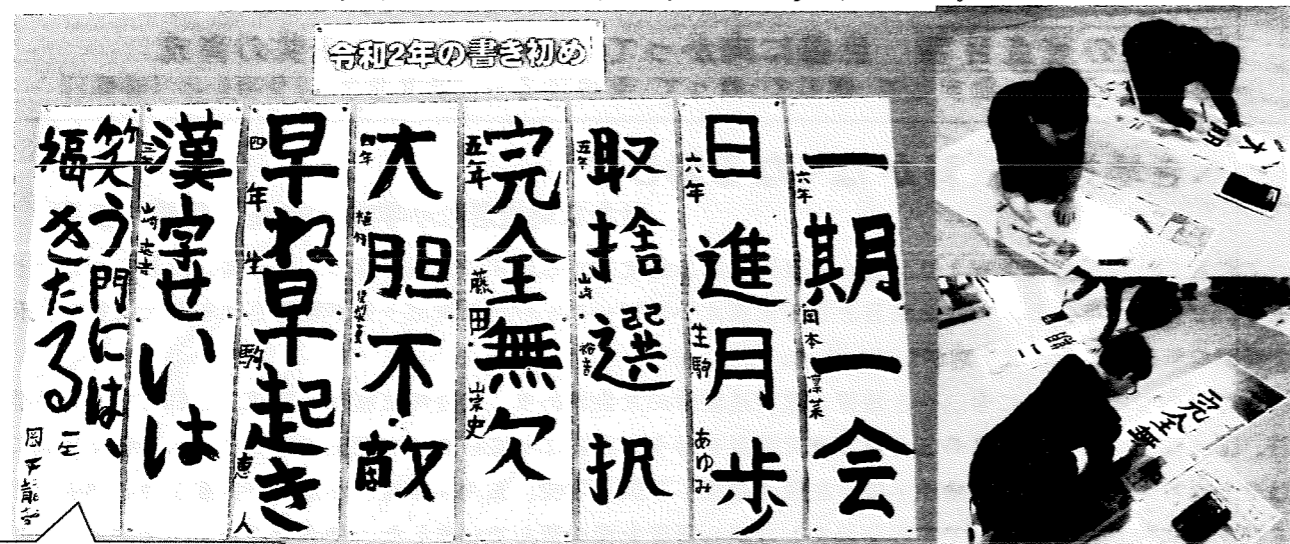 令和2年の書き初め
一期一会
六年
日進月歩
六年 生駒 あゆみ
取捨選択
五年 山崎
完全無欠
五年 藤田 崇史
大胆不敵
四年 植村
早ね早起き
四年 生駒 恵人
漢字せいは
三年 山崎
笑う門には、
福きたる
完全無